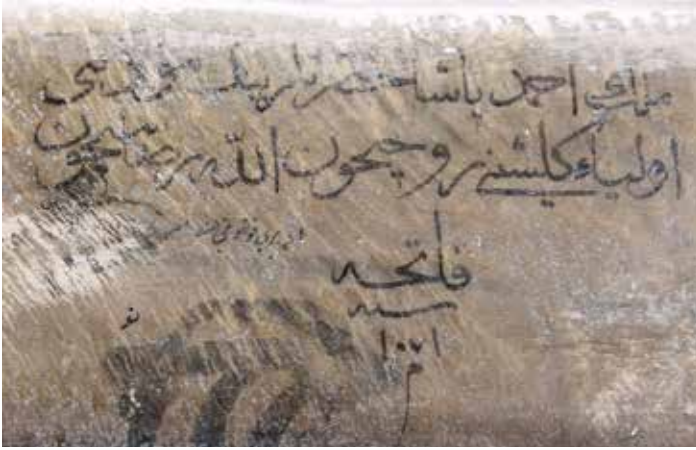 ملك احمد باشا حضرتلرينك مؤذنى
اولياء كلشنى روحيچون الله رضاسيچون
فاتحه
سنه
١٠٧١
م